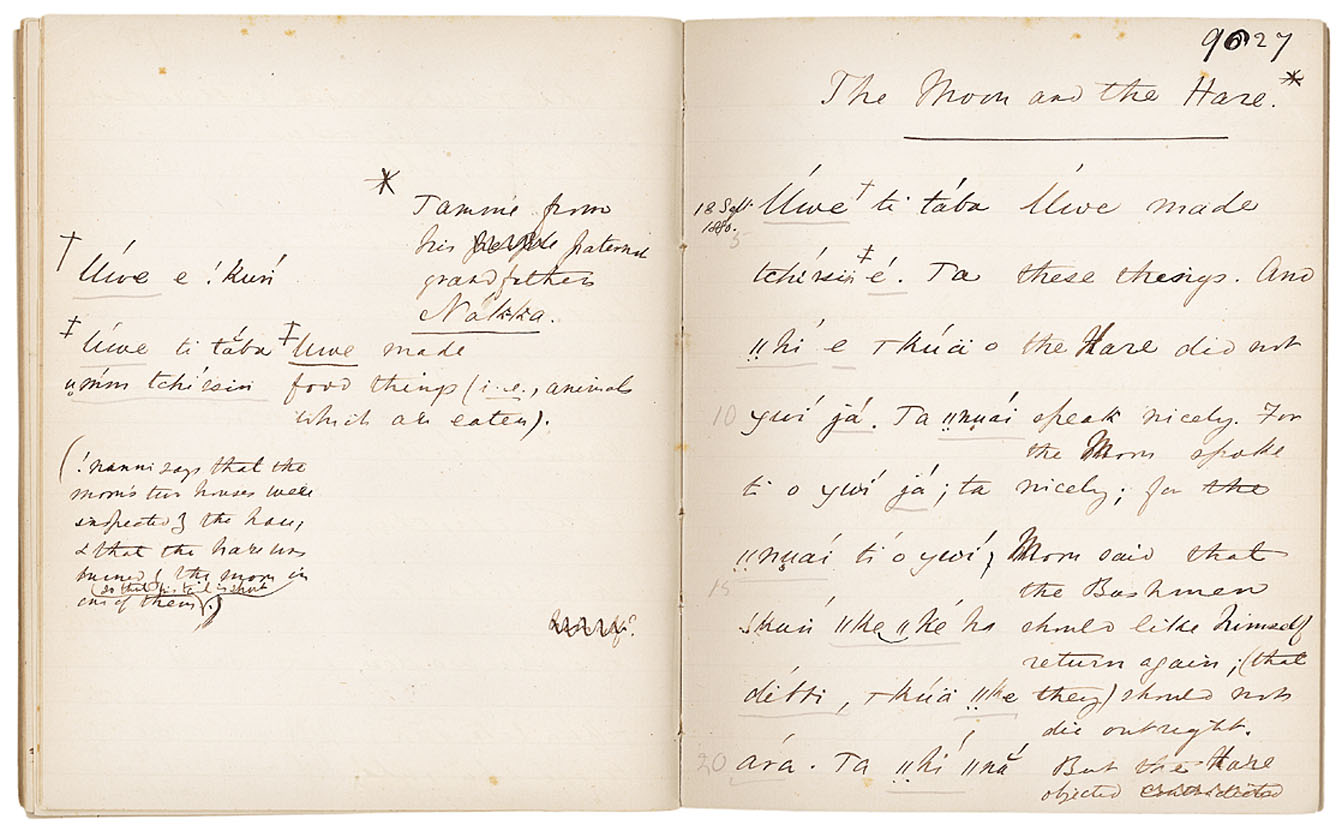 *
Tamme from
his paternal
grandfather
Nákka.
† Úwe e !kuń
‡ Úwe ti tába ‡ Úwe made
ṳm̀m tchísin food things (i.e., animals
which are eaten).
(!nanni says that the
moon's two houses were
inspected by the hare,
& that the hare was
burned by the moon in
(so that his tail is short)
one of them.)
9027
The Moon and the Hare.*
18 Sept. 1880. Úwe † ti tába Úwe made
5
tchísin ‡ é. Ta these things. And
"hí e ⊤kúä o the Hare did not
10 ywí já. Ta "nuái speak nicely. For
the Moon spoke
ti o ywí já; ta nicely; for the
"nuái ti o ywí, Moon said that
15 the Bushmen
!kuń "ke "ké ha should like himself
return again; (that
détti, ⊤kúä "ke they) should not
die outright.
20 ára. Ta "hí "nă But the Hare
objected contradicted